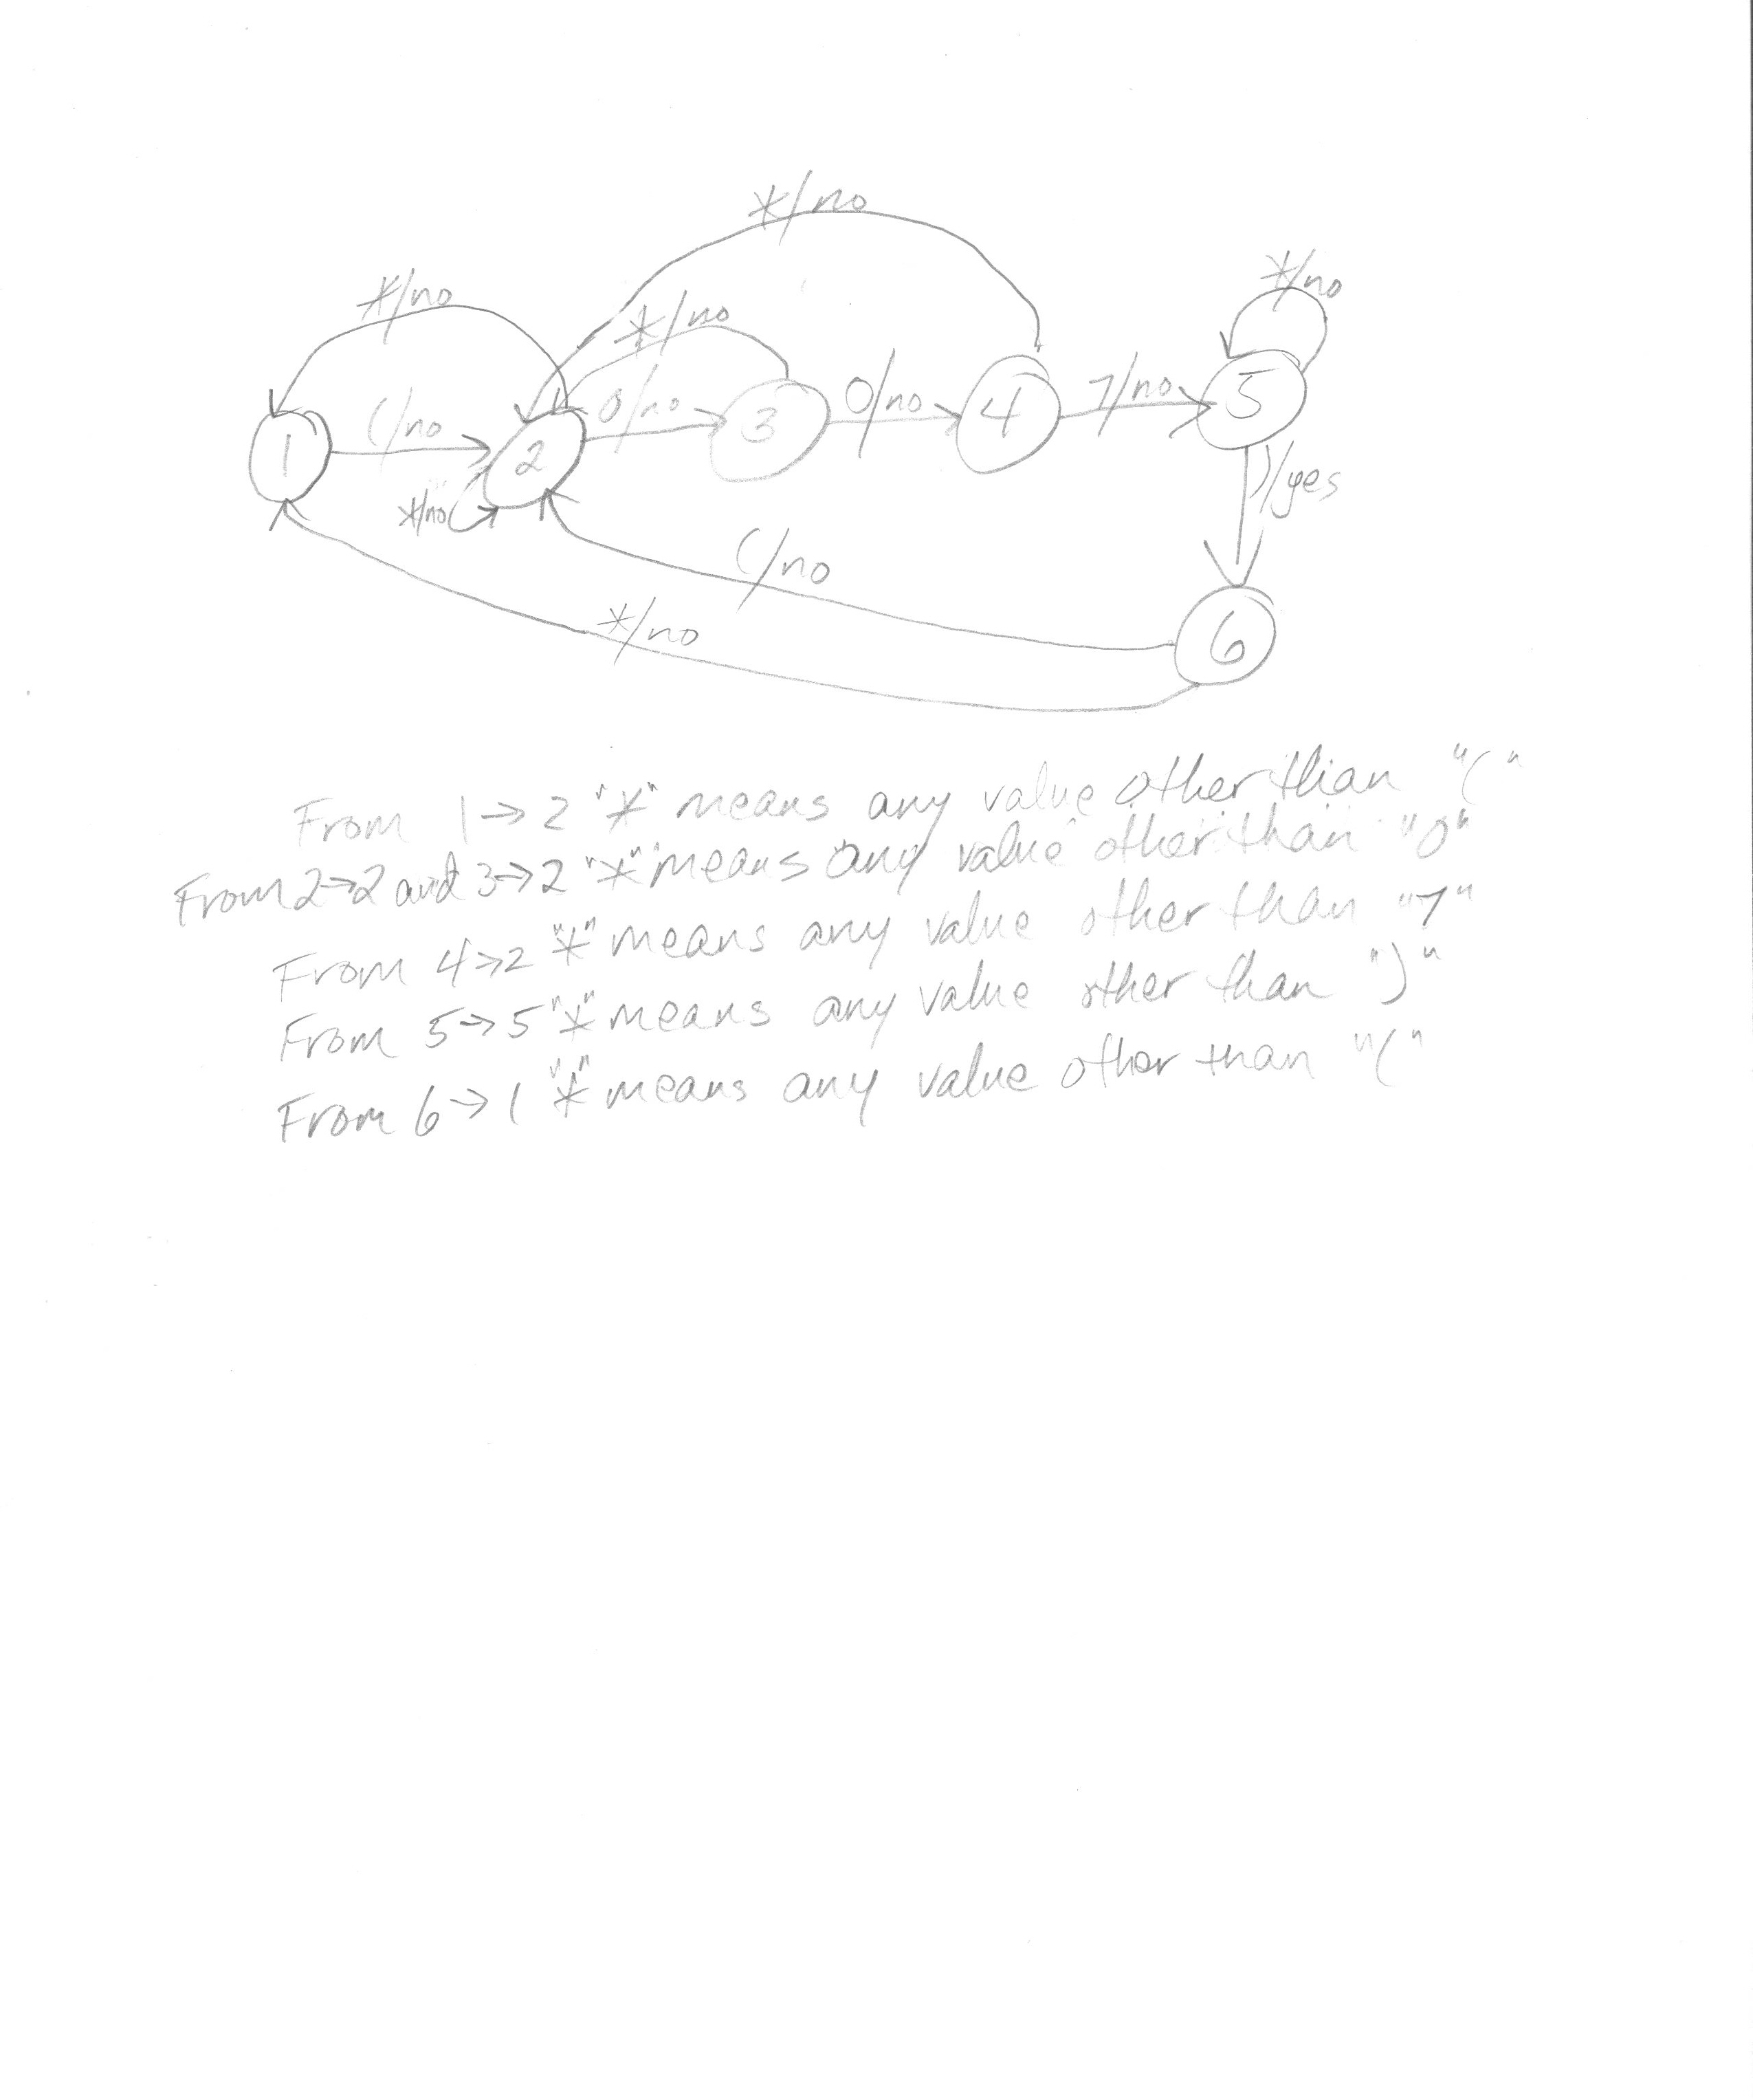 */no
*/no
*/no
*/no
(/no
0/no
0/no
7/no
1
2
3
4
5
*/no
)/yes
(/no
6
*/no
From 1→2 "*" means any value other than "("
From 2→2 and 3→2 "*" means any value other than "0"
From 4→2 "*" means any value other than "7"
From 5→5 "*" means any value other than ")"
From 6→1 "*" means any value other than "("